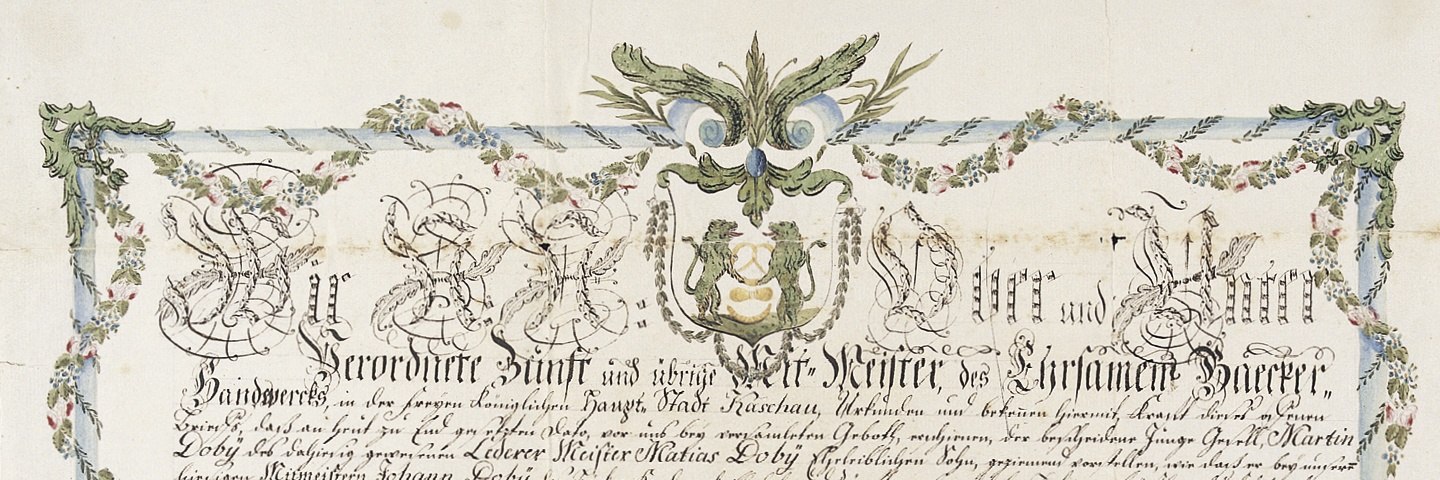 Wir N: N: Ober und Unter
Verordnete Zunft und übrige Mit- Meister, des Ehrsamen Baecker-
Handwercks, in der freyen Königlichen Haupt- Stadt Kaschau, Urkunden und bekennen hiermit, Kraft dieses offenen
Briefs, daß an heut zu End gesetzten Dato, vor uns bey versamleten Geboth, erschienen, der bescheidene Junge Gesell, Martin
Doby des dahiesig gewesenen Lederer Meister Matias Doby Eheleiblichen Sohn, geziemend vorstellen, wie daß er bey unsern
hiesigen Mitmeistern Johann Doby